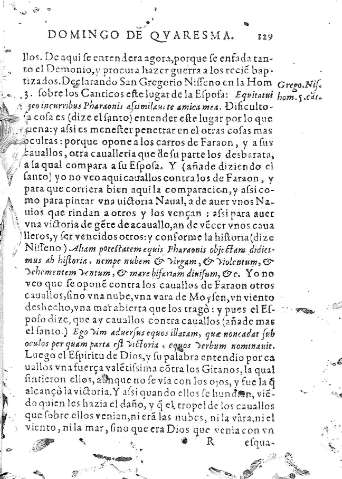 DOMINGO DE QVARESMA. 129
llos. De aqui se entendera agora, porque se enfada tan-
to el Demonio, y procura hazer guerra a los reciē bap-
tizados. Declarando San Gregorio Nisseno en la Hom
3. sobre los Canticos este lugar de la Esposa: Equitatui
geo incurribus Pharaonis asimilaui te amica mea. Dificulto-
sa cosa es (dize el santo) entender este lugar por lo que
suena: y assi es menester penetrar en el otras cosas mas
ocultas: porque opone a los carros de Faraon, y a sus
cauallos, otra caualleria que de su parte los desbarata,
a la qual compara a su Esposa. Y (añade diziendo el
santo) yo no veo aqui cauallos contra los de Faraon, y
para que corriera bien aqui la comparacion, y assi co-
mo para pintar vna victoria Naual, a de auer vnos Na-
uios que rindan a otros y los vençan: assi para auer
vna victoria de gēte de acauallo, an de vécer vnos caua
lleros, y ser vencidos otros: y conforme la historia (dize
Nisseno) Aliam potestatem equis Pharaonis obiectam didici-
mus ab historia. nempe nubem & virgam, & violentum, &
vehementem ventum, & mare bifariam diuisum, &c. Yo no
veo que se oponē contra los cauallos de Faraon otros
cauallos, sino vna nube, vna vara de Moysen, vn viento
deshecho, vna mar abierta que los tragò: y pues el Es-
poso dize, que ay cauallos contra cauallos (añade mas
el santo.) Ego vim aduersus equos illatam, quæ non cadat sub
oculos per quam parta est victoria, equos verbum nominauit.
Luego el Espiritu de Dios, y su palabra entendio por ca
uallos vna fuerça valētissima cōtra los Gitanos, la qual
sintieron ellos, aunque no se via con los ojos, y fue la q̄
alcançò la victoria. Y assi quando ellos se hundian, viē-
do quien les hazia el daño, y q̄ el tropel de los cauallos
que sobre ellos venian, ni erā las nubes, ni la vara, ni el
viento, ni la mar, sino que era Dios que venia con vn
R esqua-
Grego. Nis.
hom. 3. cāt.